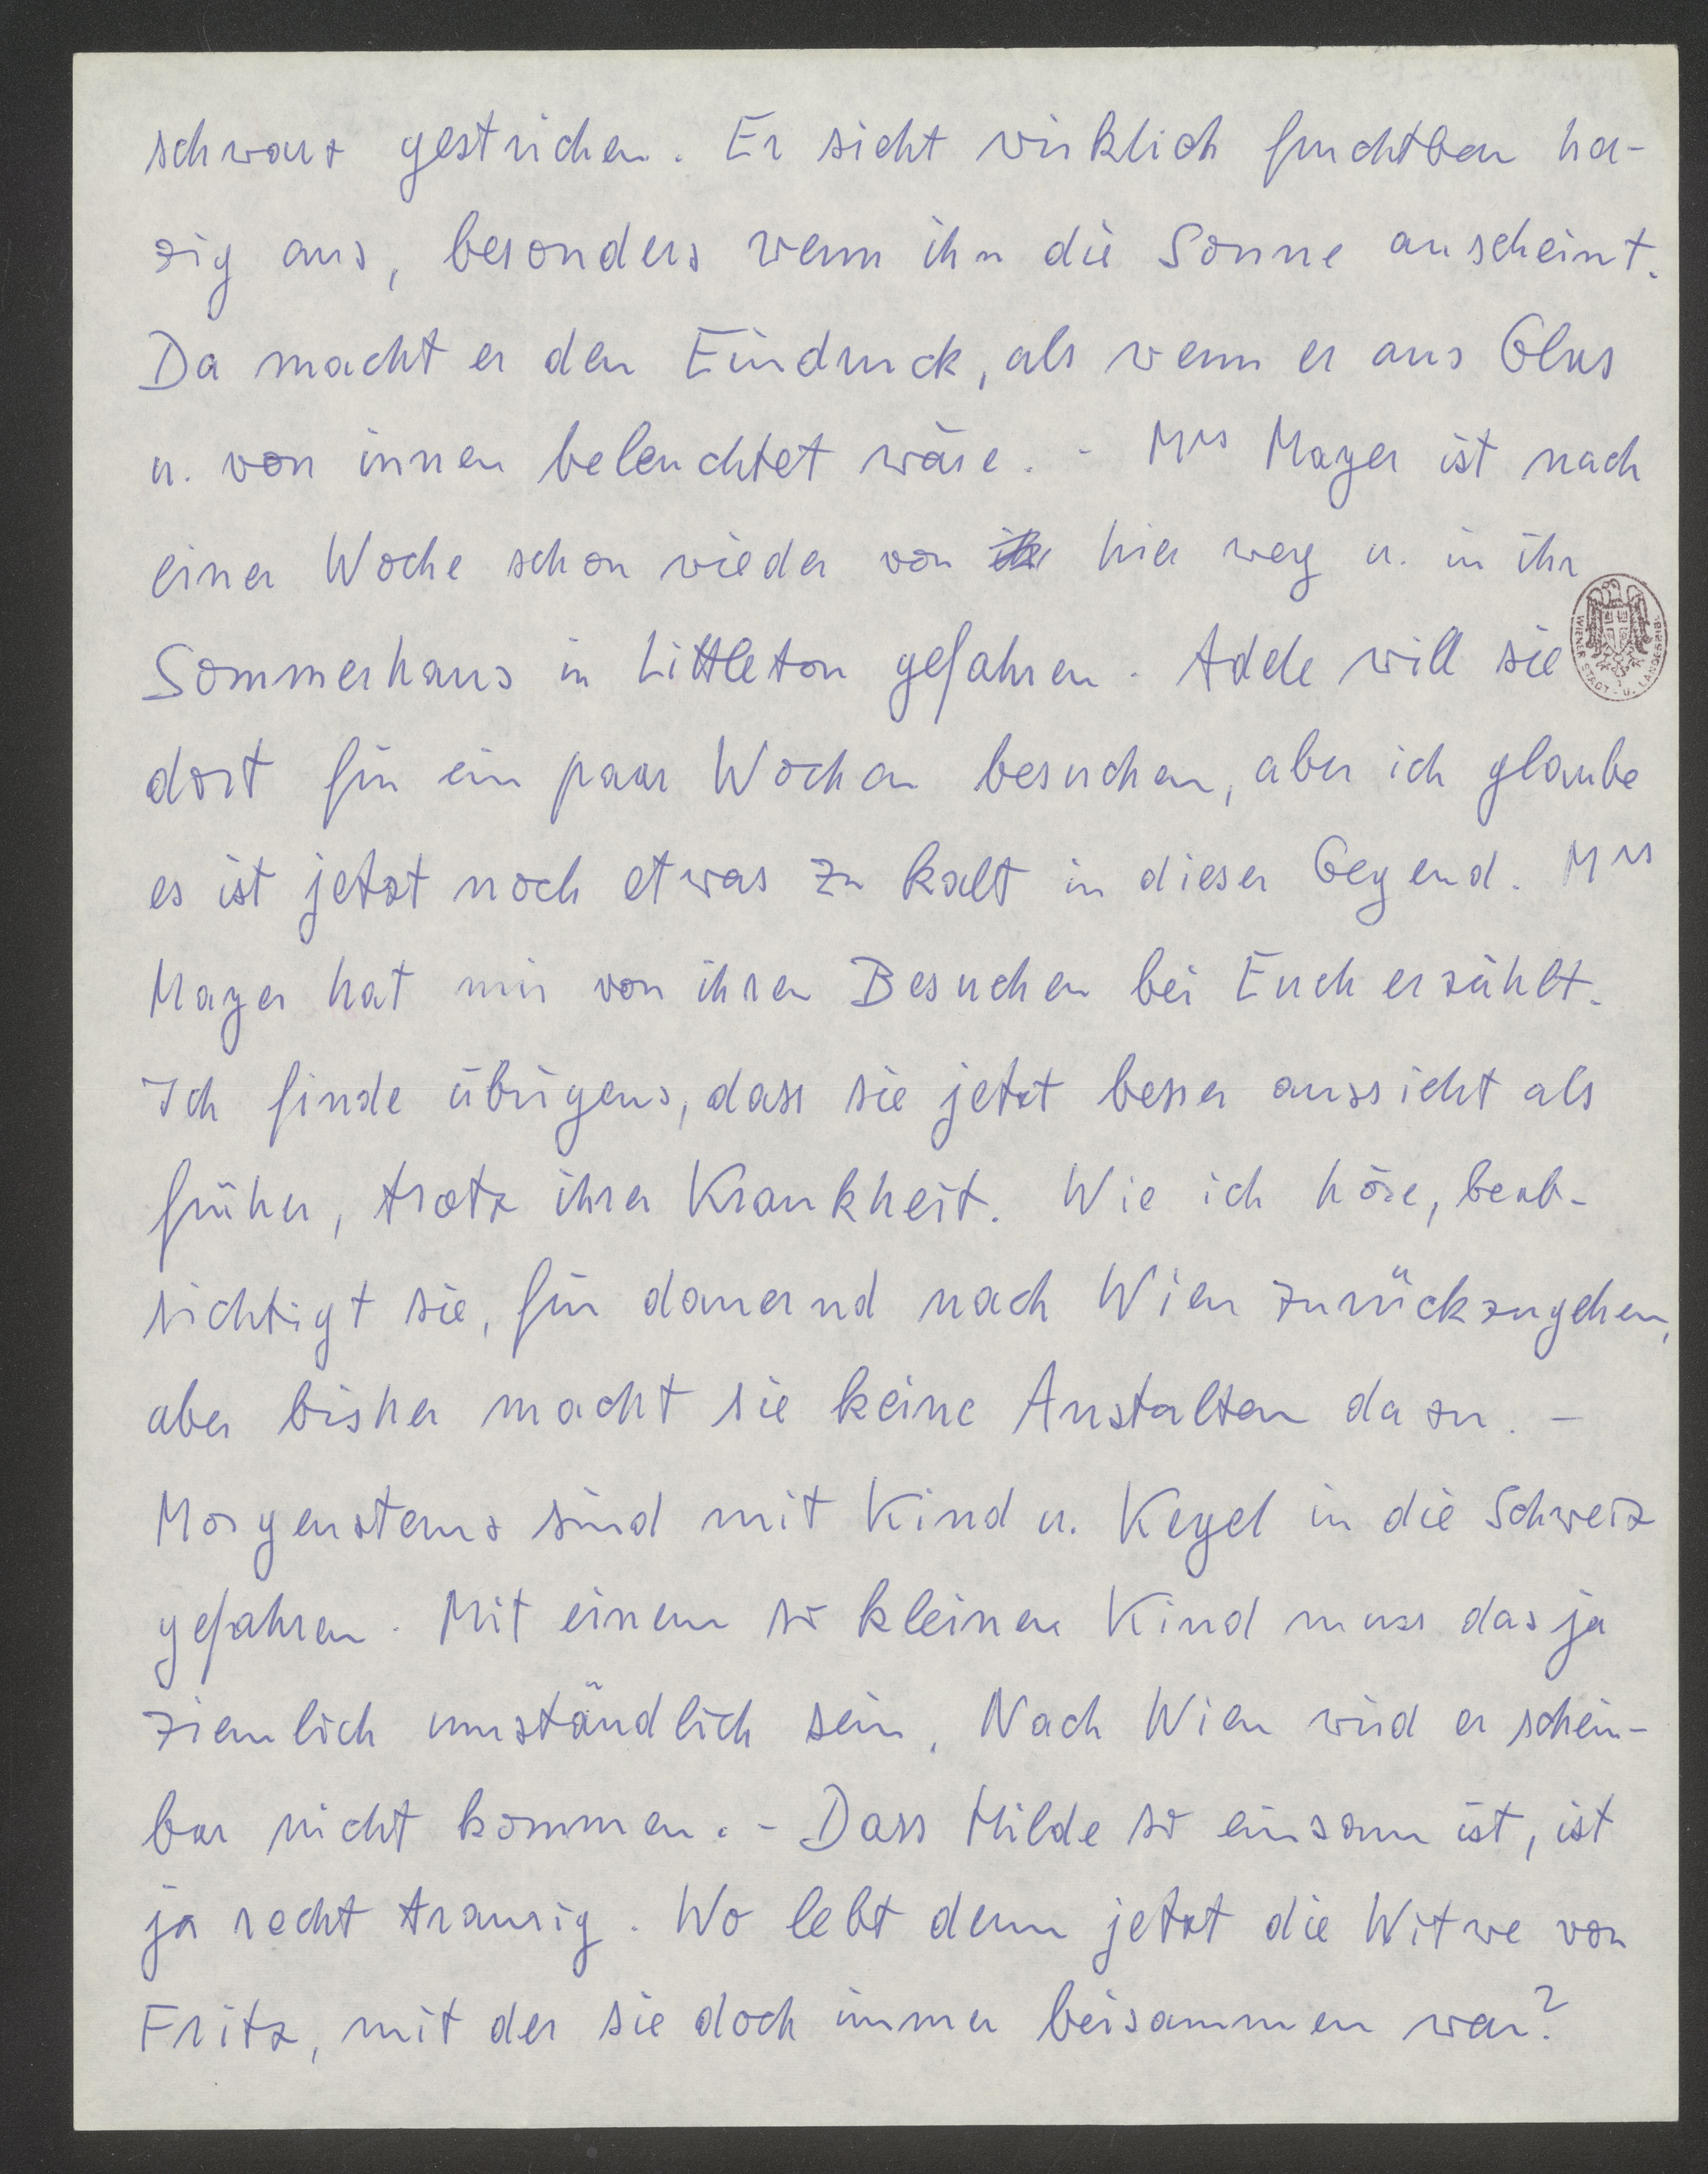 schwarz gestrichen. Er sieht wirklich furchtbar ha-
zig aus, besonders wenn ihn die Sonne anscheint.
Da macht er den Eindruck, als wenn er aus Glas
u. von innen beleuchtet wäre. - Mrs Mayer ist nach
einer Woche schon wieder von hier weg u. in ihr
Sommerhaus in Littleton gefahren. Adele will sie
dort für ein paar Wochen besuchen, aber ich glaube
es ist jetzt noch etwas zu kalt in dieser Gegend. Mrs
Mayer hat mir von ihren Besuchen bei Euch erzählt.
Ich finde übrigens, dass sie jetzt besser aussieht als
früher, trotz ihrer Krankheit. Wie ich höre, beab-
sichtigt sie, für dauernd nach Wien zurückzugehen,
aber bisher macht sie keine Anstalten dazu. -
Morgensterns sind mit Kind u. Kegel in die Schweiz
gefahren. Mit einem so kleinen Kind muss das ja
ziemlich umständlich sein. Nach Wien wird er schein-
bar nicht kommen. - Dass Hilde so einsam ist, ist
ja recht traurig. Wo lebt denn jetzt die Witwe von
Fritz, mit der sie doch immer beisammen war?
WIENER STADT- U. LANDESBIBL.